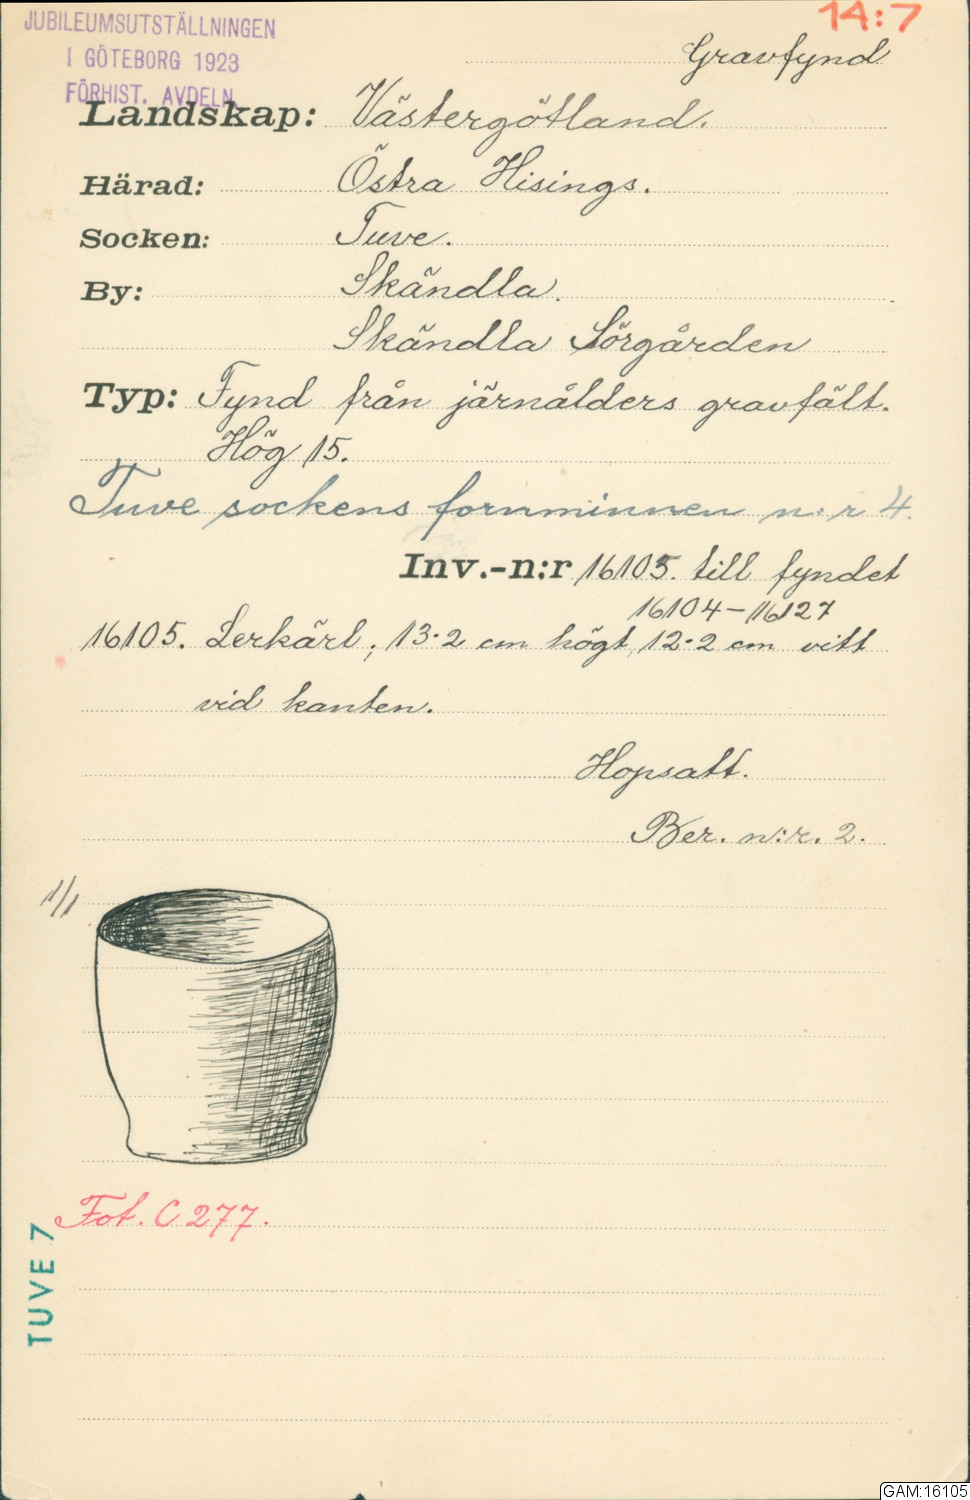 JUBILEUMSUTSTÄLLNINGEN
I GÖTEBORG 1923
FÖRHIST. AVDELN.
14:7
Gravfynd
Landskap: Västergötland.
Härad: Östra Hisings.
Socken: Tuve.
By: Skändla.
Skändla Sörgården
Typ: Fynd från järnålders gravfält.
Hög 15.
Tuve sockens fornminnen n:r 4.
Inv.-n:r 16105. till fyndet
16104-16127
16105. Lerkärl; 13·2 cm högt, 12·2 cm vitt
vid kanten.
Hopsatt.
Ber. n:r. 2.
1/1
Fot. C 277.
TUVE 7
GAM:16105